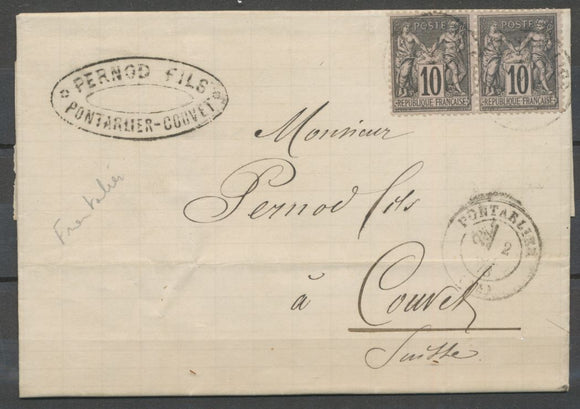 POSTE POSTE
10 10
REPUBLIQUE FRANÇAISE REPUBLIQUE FRANÇAISE
PERNOD FILS
PONTARLIER-COUVET
Monsieur
Pernod fils
PONTARLIER
2
à Couvet
Suisse